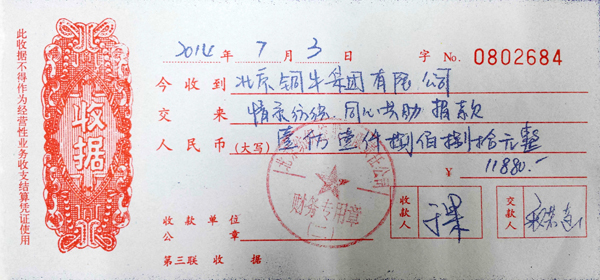 2014年 7月 3日 字 No. 0802684
今收到 北京铜牛集团有限公司
交来 情系纺织.同心共助 捐款
人民币(大写)壹万壹仟捌佰捌拾元整
¥ 11880.-
收款单位
公章
收款人
交款人
第三联 收据
收据
此收据不得作为经营性业务收支结算凭证使用
北京
公司
财务专用章
(二)